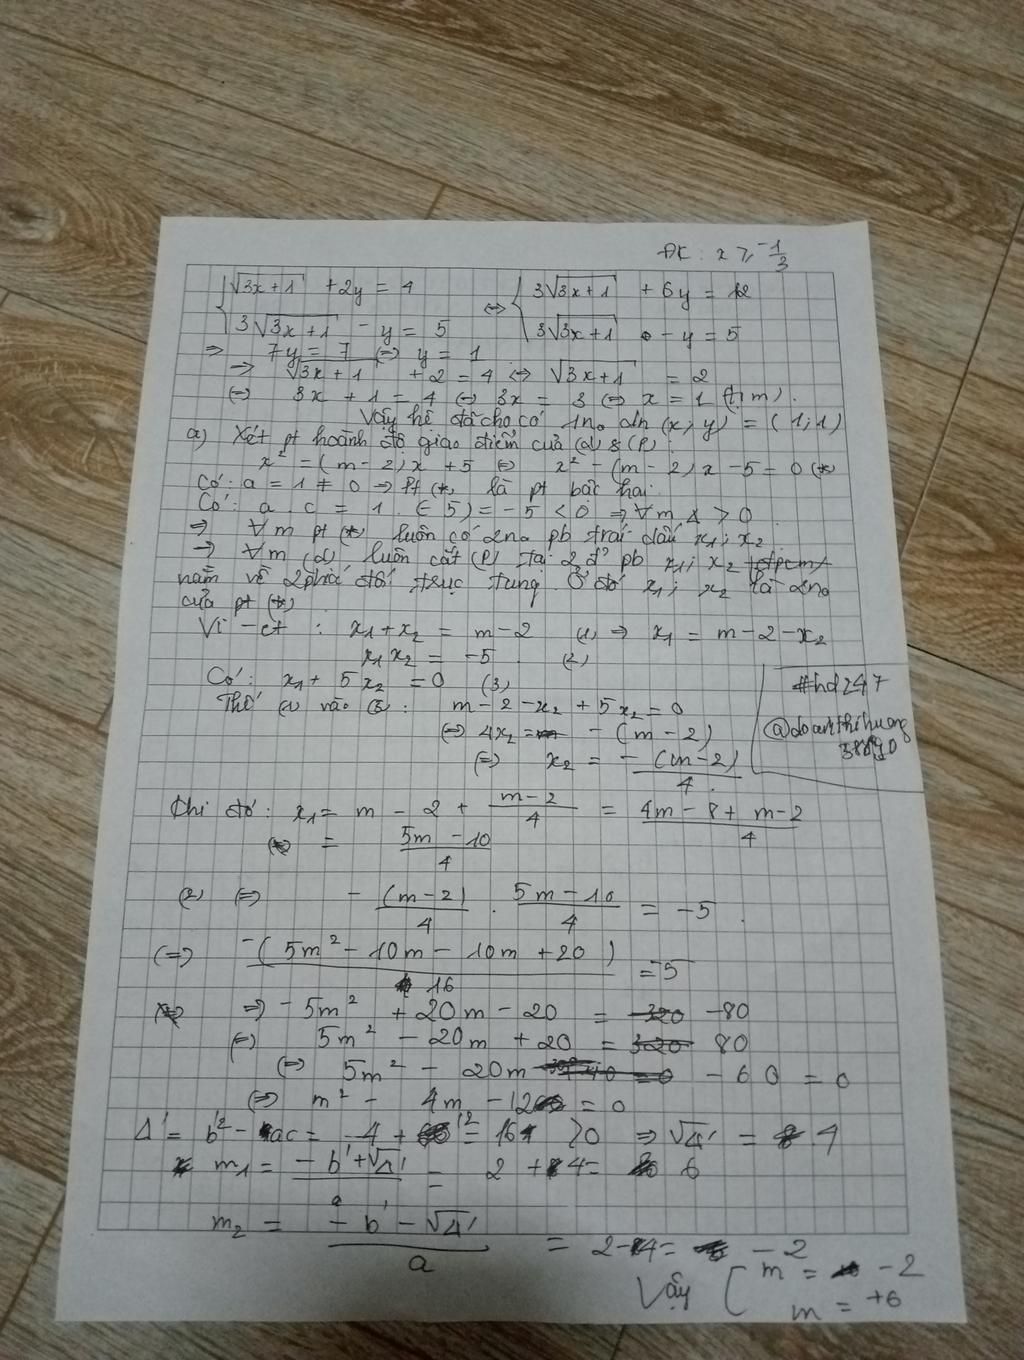 ĐK: x ≥ -1/3
{ √(3x+1) + 2y = 4 ⇔ { 3√(3x+1) + 6y = 12
3√(3x+1) - y = 5 3√(3x+1) - y = 5
⇒ 7y = 7 ⇔ y = 1
→ √(3x+1) + 2 = 4 ⇔ √(3x+1) = 2
⇔ 3x + 1 = 4 ⇔ 3x = 3 ⇔ x = 1 (t/m).
Vậy hệ đã cho có 1no dn (x; y) = (1; 1)
a) Xét pt hoành độ giao điểm của (d) & (P)
x² = (m-2)x + 5 ⇔ x² - (m-2)x - 5 = 0 (*)
Có: a = 1 ≠ 0 → Pt (*) là pt bậc hai
Có: a.c = 1.(-5) = -5 < 0 ⇒ ∀m Δ > 0
⇒ ∀m pt (*) luôn có 2no pb trái dấu x₁; x₂
→ ∀m (d) luôn cắt (P) tại 2 đ' pb x₁; x₂ đpcm
nằm về 2 phía đối trục tung. Ở đó x₁; x₂ là 2no
của pt (*)
Vi-et: x₁ + x₂ = m - 2 (1) ⇒ x₁ = m - 2 - x₂
x₁x₂ = -5 (2)
Có: x₁ + 5x₂ = 0 (3)
Thế (1) vào (3): m - 2 - x₂ + 5x₂ = 0
⇔ 4x₂ = -(m-2)
⇔ x₂ = -(m-2)/4
#hd247
@doanthihuong
Khi đó: x₁ = m - 2 + (m-2)/4 = (4m - 8 + m - 2)/4
= (5m - 10)/4
(2) ⇔ -(m-2)/4 . (5m-10)/4 = -5.
⇔ -(5m² - 10m - 10m + 20)/16 = -5
⇒ -5m² + 20m - 20 = -80
⇔ 5m² - 20m + 20 = 80
⇔ 5m² - 20m - 60 = 0
⇔ m² - 4m - 12 = 0
Δ' = b'² - ac = 4 + 12 = 16 > 0 ⇒ √Δ' = 4
m₁ = (-b' + √Δ')/a = 2 + 4 = 6
m₂ = (-b' - √Δ')/a = 2 - 4 = -2
Vậy [ m = -2
m = +6